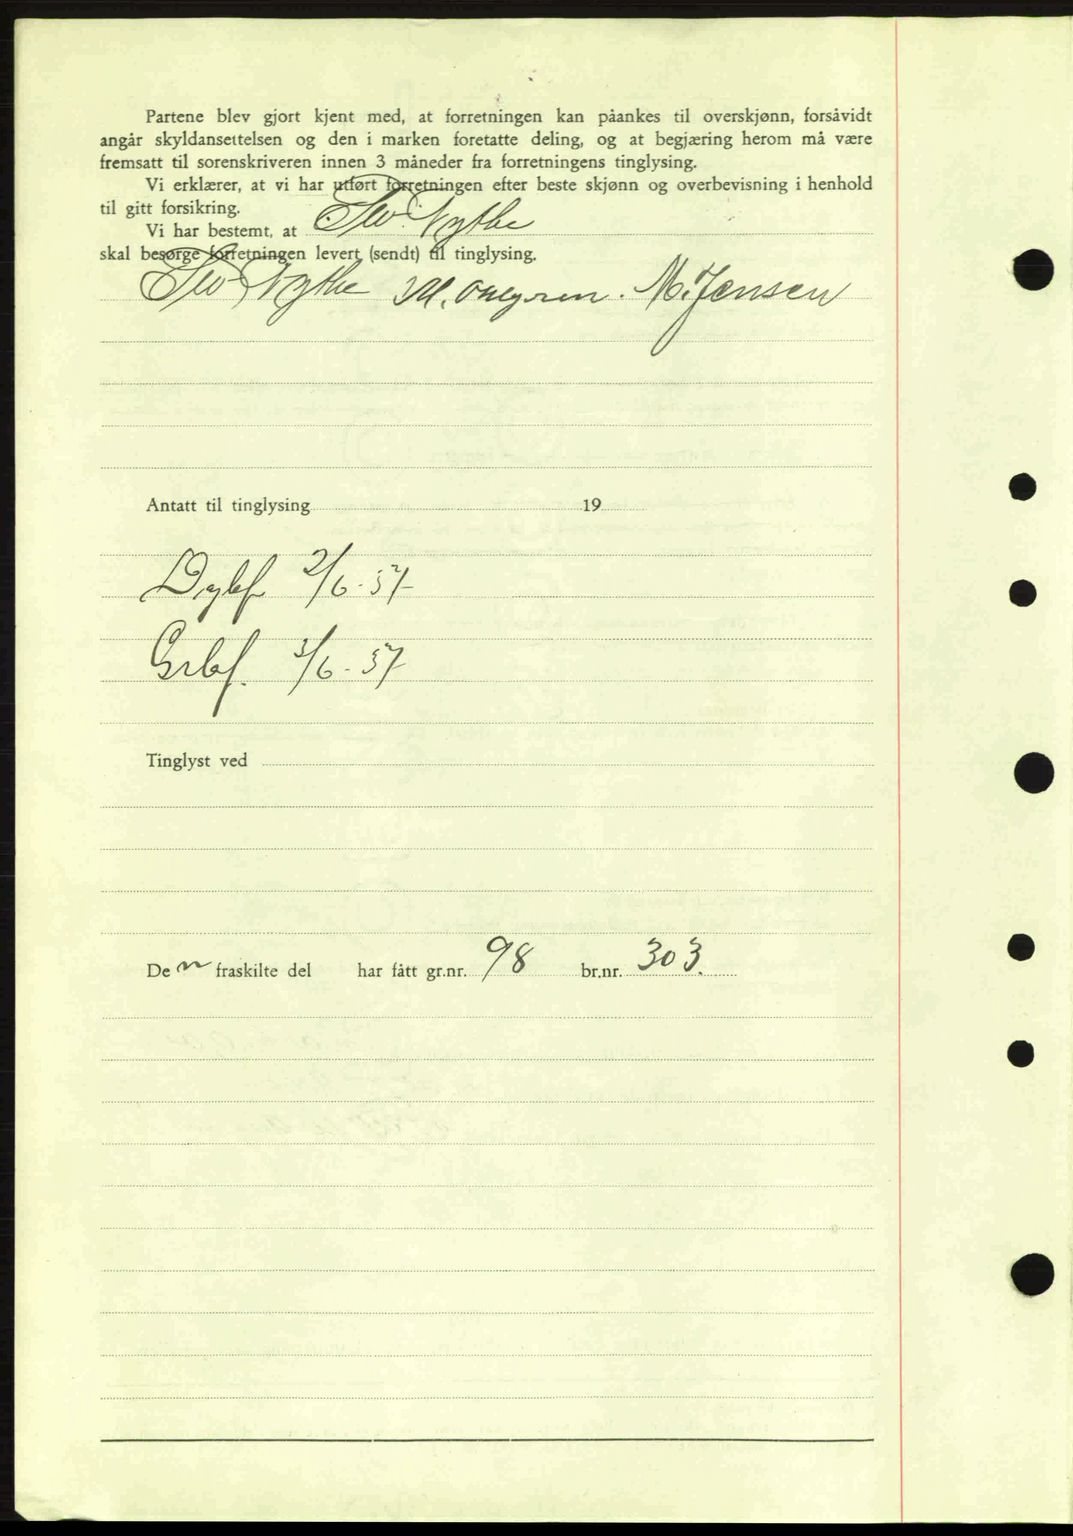 Partene blev gjort kjent med, at forretningen kan påankes til overskjønn, forsåvidt
angår skyldansettelsen og den i marken foretatte deling, og at begjæring herom må være
fremsatt til sorenskriveren innen 3 måneder fra forretningens tinglysing.
Vi erklærer, at vi har utført forretningen efter beste skjønn og overbevisning i henhold
til gitt forsikring.
Vi har bestemt, at Nythe
skal besørge forretningen levert (sendt) til tinglysing.
Nythe M. M. Jensen
Antatt til tinglysing 19
Dgbf 2/6-37
Grbf. 3/6-37
Tinglyst ved
De n fraskilte del har fått gr.nr. 98 br.nr. 303.